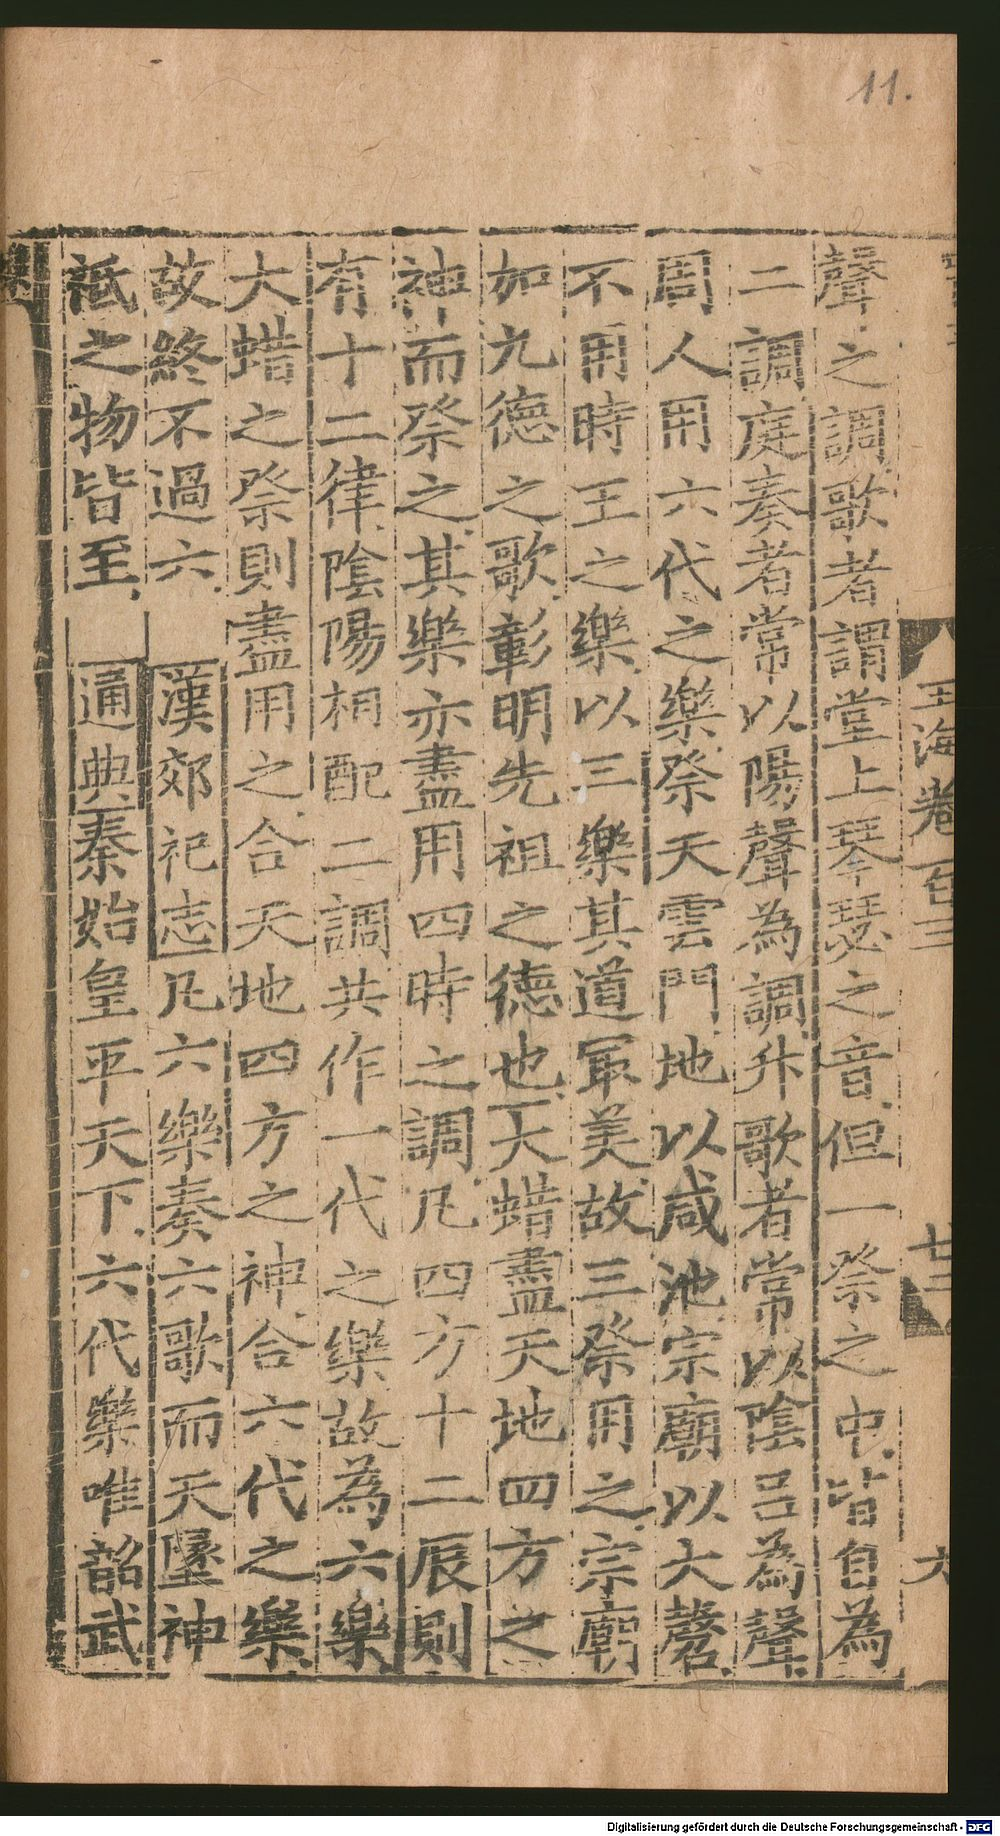 11.
玉海卷百三
廿二
聲之調歌者謂堂上琴瑟之音但一祭之中皆自為
二調庭奏者常以陽聲為調升歌者常以陰呂為聲
周人用六代之樂祭天雲門地以咸池宗廟以大磬
不用時王之樂以三樂其道冣美故三祭用之宗廟
如九德之歌彰明先祖之德也大蜡盡天地四方之
神而祭之其樂亦盡用四時之調凡四方十二辰則
有十二律陰陽相配二調共作一代之樂故為六樂
大蜡之祭則盡用之合天地四方之神合六代之樂
故終不過六 漢郊祀志凡六樂奏六歌而天墬神
祗之物皆至 通典秦始皇平天下六代樂唯韶武
Digitalisierung gefördert durch die Deutsche Forschungsgemeinschaft - DFG